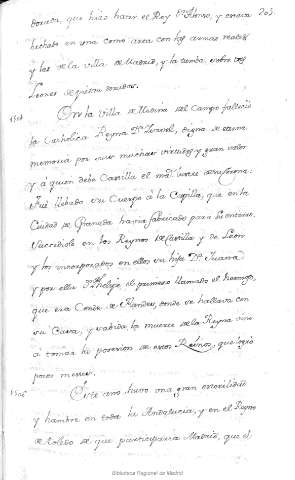 dorada, que hizo hacer el Rey Dn. Alonso, y estava 203.
hechada en una como arca con las armas reales
y las de la villa de Madrid, y la tumba sobre dos
Leones de piedra doradas.
1504 En la Villa de Medina del Campo fallecio
la Catholica Reyna Da. Isavel, digna de eterna
memoria por sus muchas virtudes, y gran valor
y á quien debe Castilla el
Fué llebado su Cuerpo á la Capilla, que en la
Ciudad de Granada havia fabricado para su entierro.
Sucediole en los Reynos de Castilla y de Leon
y los incorporados en ellos su hija Da. Juana
y por ella Dn. Phelipe el primero llamado el hermoso,
que era Conde de Flandes, donde se hallava con
su Esposa, y sabida la muerte de la Reyna vino
a tomar la posesion de estos Reinos, que gozó
pocos meses.
Este año huvo una gran esterilidad
y hambre en toda la Andalucia, y en el Reyno
de Toledo de que participaria Madrid, que el
Biblioteca Regional de Madrid